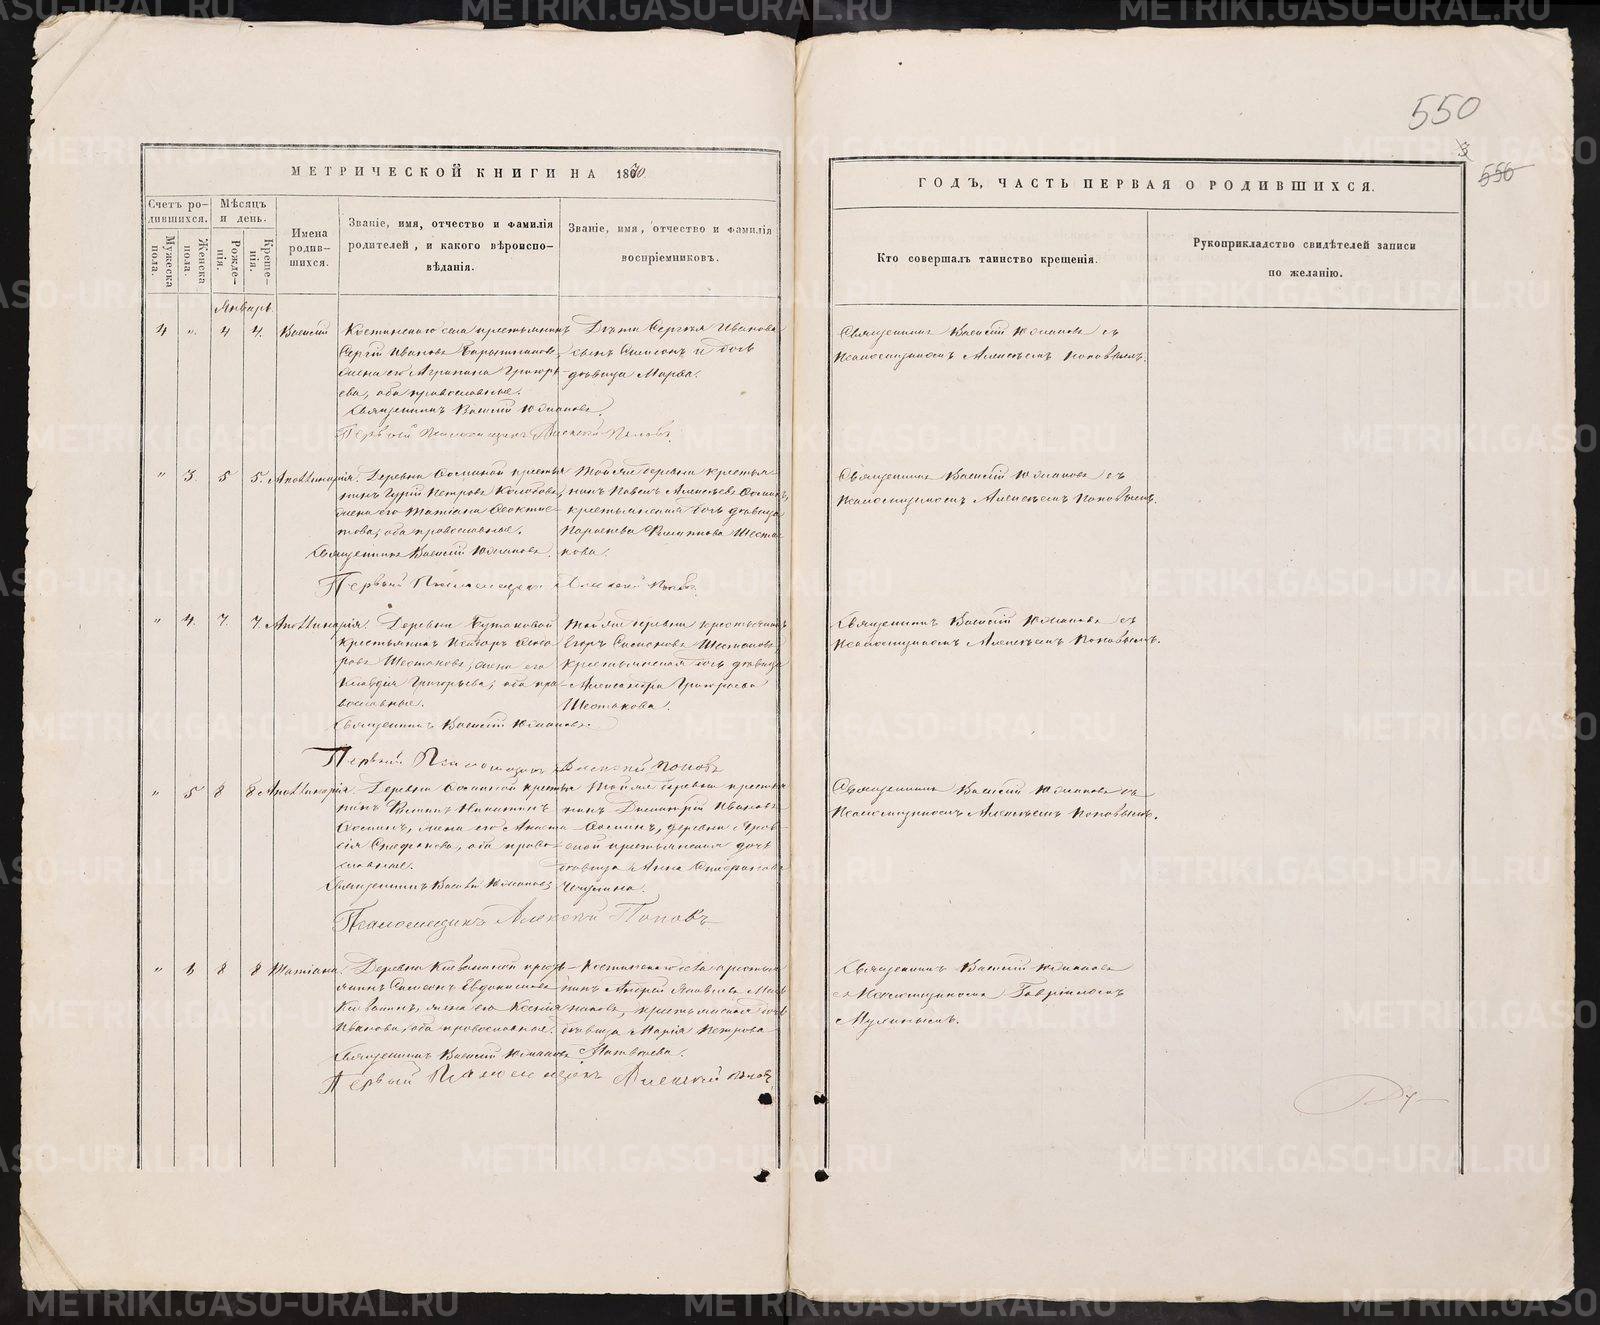 550
3
550
МЕТРИЧЕСКОЙ КНИГИ НА 1870.
ГОДЪ, ЧАСТЬ ПЕРВАЯ О РОДИВШИХСЯ.
Счетъ ро-
дившихся.
Мужеска
пола.
Женска
пола.
Мѣсяцъ
и день.
Рожде-
нія.
Креще-
нія.
Имена
родив-
шихся.
Званіе, имя, отчество и фамилія
родителей, и какого вѣроиспо-
вѣданія.
Званіе, имя, отчество и фамилія
воспріемниковъ.
Кто совершалъ таинство крещенія.
Рукоприкладство свидѣтелей записи
по желанію.
Январь.
4 " 4 4. Василій
Костинскаго села крестьянинъ
Сергій Ивановъ
жена его Агрипина Григорь-
ева, оба православные.
Священникъ Василій Юмановъ.
Первый Псаломщикъ Алексѣй Поповъ.
Дѣти Сергѣя Иванова
сынъ Симеонъ и дочь
дѣвица Марѳа.
Священникъ Василій Юмановъ съ
Псаломщикомъ Алексѣемъ Поповымъ.
" 3. 5 5. Аполлинарія.
Деревни Ѳоминой крестья
нинъ Гурій Петровъ Колобовъ,
жена его Татіана Ѳеоктис-
това, оба православные.
Священникъ Василій Юмановъ.
Первый Псаломщикъ Алексѣй Поповъ.
Той же деревни крестья-
нинъ Павелъ Алексѣевъ Ѳоминъ,
крестьянская дочь дѣвица
Параскева Филиппова Шеста
кова.
Священникъ Василій Юмановъ съ
Псаломщикомъ Алексѣемъ Поповымъ.
" 4. 7. 7. Аполлинарія.
Деревни Бутаковой
крестьянинъ Ѳедо
ровъ Шестаковъ, жена его
Клавдія Григорьева, оба пра
вославные.
Священникъ Василій Юмановъ.
Первый Псаломщикъ Алексѣй Поповъ
Той же деревни крестьянинъ
Егоръ Симеоновъ Шестаковъ
крестьянская дочь дѣвица
Александра Григорьева
Шестакова.
Священникъ Василій Юмановъ съ
Псаломщикомъ Алексѣемъ Поповымъ.
" 5 8 8 Аполлинарія.
Деревни Ѳоминой крестья
нинъ Никитинъ
Ѳоминъ, жена его Анаста
сія Стефанова, оба право
славные.
Священникъ Василій Юмановъ
Псаломщикъ Алексѣй Поповъ
Той же деревни крестья
нинъ Димитрій Ивановъ
Ѳоминъ, деревни Яров-
ской крестьянская дочь
дѣвица Анна Стефанова
Чечулина.
Священникъ Василій Юмановъ съ
Псаломщикомъ Алексѣемъ Поповымъ.
" 6 8 8 Татіана.
Деревни Ключиной кресть-
янинъ Симеонъ Евдокимовъ
жена его Ксенія
Иванова, оба православные.
Священникъ Василій Юмановъ
Первый Псаломщикъ Алексѣй Поповъ
Костинскаго села крестья
нинъ Андрей Яковлевъ
крестьянская дочь
дѣвица Марія Петрова
Матвѣева.
Священникъ Василій Юмановъ
съ Псаломщикомъ Гавріиломъ
Мулинымъ.
METRIKI.GASO-URAL.RU